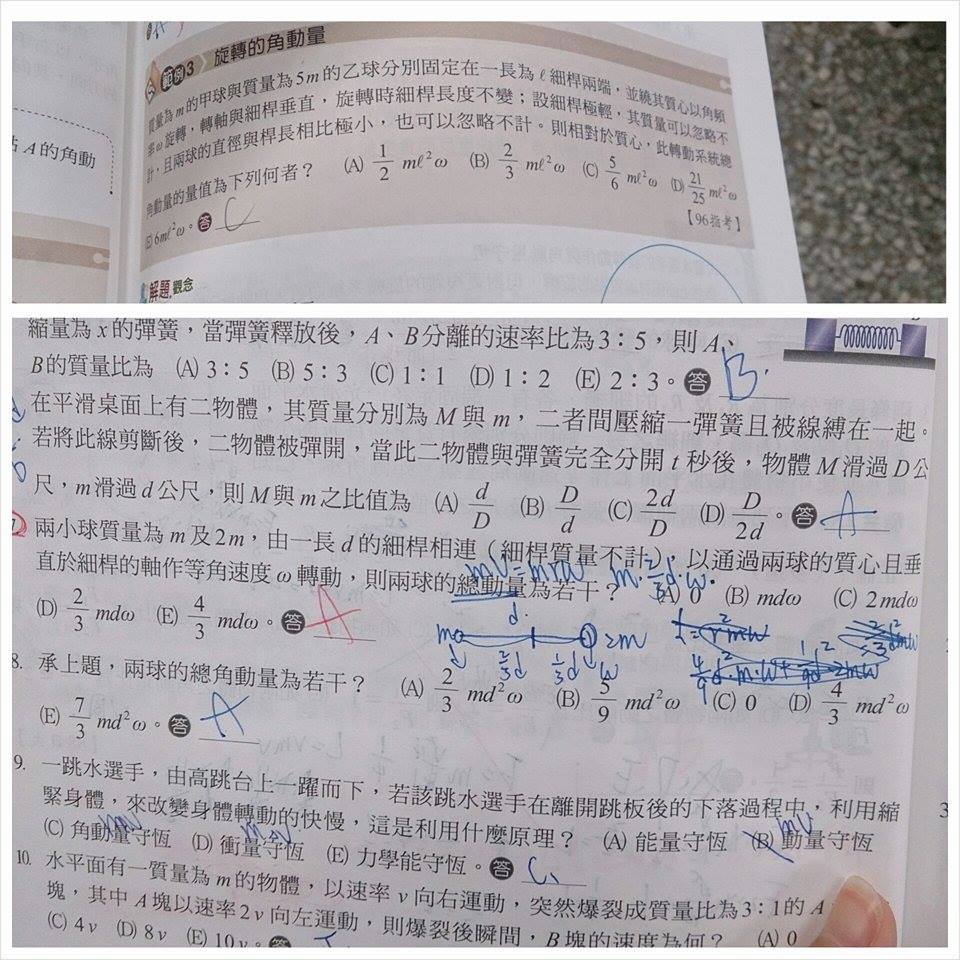 點A的角動
範例3 旋轉的角動量
質量為m的甲球與質量為5m的乙球分別固定在一長為ℓ細桿兩端,並繞其質心以角頻
率ω旋轉,轉軸與細桿垂直,旋轉時細桿長度不變;設細桿極輕,其質量可以忽略不
計,且兩球的直徑與桿長相比極小,也可以忽略不計。則相對於質心,此轉動系統總
角動量的量值為下列何者? (A) 1/2 mℓ²ω (B) 2/3 mℓ²ω (C) 5/6 mℓ²ω (D) 21/25 mℓ²ω
(E) 6mℓ²ω。答 C 【96指考】
解題觀念
縮量為x的彈簧,當彈簧釋放後,A、B分離的速率比為3:5,則A、
B的質量比為 (A) 3:5 (B) 5:3 (C) 1:1 (D) 1:2 (E) 2:3。答 B.
在平滑桌面上有二物體,其質量分別為M與m,二者間壓縮一彈簧且被線縛在一起。
若將此線剪斷後,二物體被彈開,當此二物體與彈簧完全分開t秒後,物體M滑過D公
尺,m滑過d公尺,則M與m之比值為 (A) d/D (B) D/d (C) 2d/D (D) D/2d。答 A
兩小球質量為m及2m,由一長d的細桿相連(細桿質量不計),以通過兩球的質心且垂
直於細桿的軸作等角速度ω轉動,則兩球的總動量為若干? (A) 0 (B) mdω (C) 2mdω
mv=mrw m·2/3d·w.
(D) 2/3 mdω (E) 4/3 mdω。答 A
d.
m 2m
2/3d 1/3d w
8. 承上題,兩球的總角動量為若干? (A) 2/3 md²ω (B) 5/9 md²ω (C) 0 (D) 4/3 md²ω
(E) 7/3 md²ω。答 A
9. 一跳水選手,由高跳台上一躍而下,若該跳水選手在離開跳板後的下落過程中,利用縮
緊身體,來改變身體轉動的快慢,這是利用什麼原理? (A) 能量守恆 (B) 動量守恆
mv
(C) 角動量守恆 (D) 衝量守恆 (E) 力學能守恆。答 C
10. 水平面有一質量為m的物體,以速率v向右運動,突然爆裂成質量比為3:1的A
塊,其中A塊以速率2v向左運動,則爆裂後瞬間,B塊的速度為何? (A) 0
(C) 4v (D) 8v (E) 10v。答